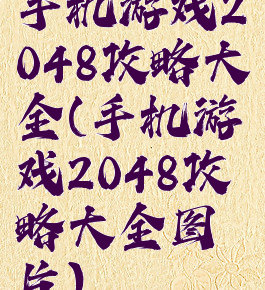 手机游戏2
048攻略大
全(手机游
戏2048攻
略大全图
片)